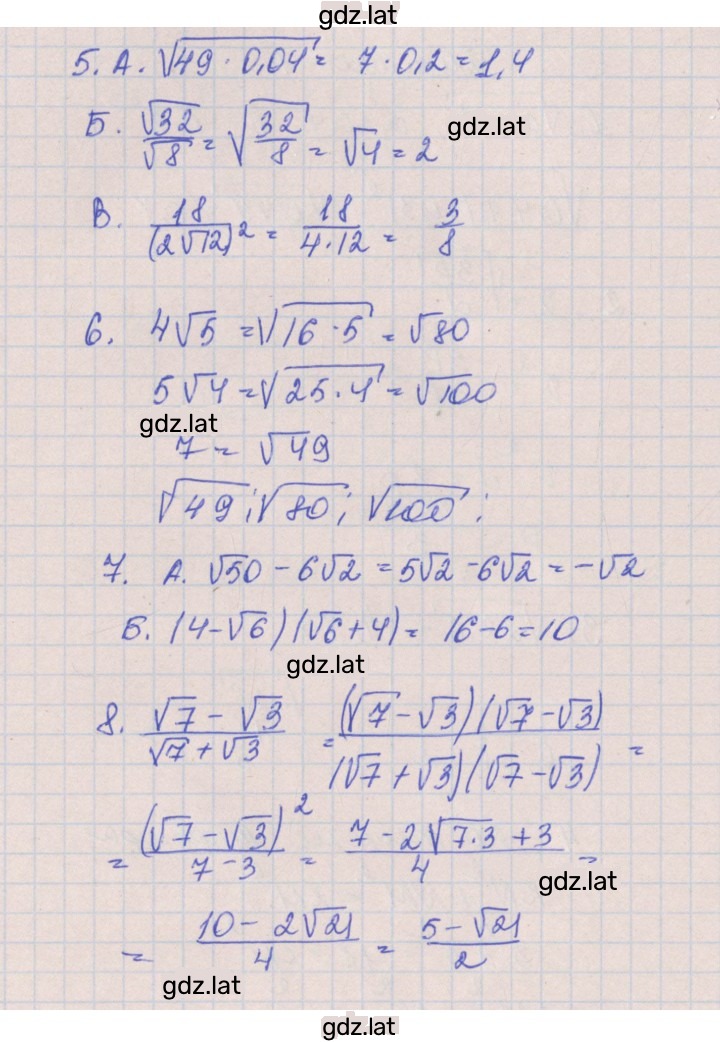 gdz.lat
5. А. √(49 · 0,04) = 7 · 0,2 = 1,4
Б. √32/√8 = √(32/8) = √4 = 2
gdz.lat
В. 18/(2√12)² = 18/(4·12) = 3/8
6. 4√5 = √(16·5) = √80
5√4 = √(25·4) = √100
gdz.lat
7 = √49
√49; √80; √100;
7. А. √50 - 6√2 = 5√2 - 6√2 = -√2
Б. (4-√6)(√6+4) = 16-6=10
gdz.lat
8. (√7 - √3)/(√7 + √3) = (√7 - √3)(√7 - √3)/(√7 + √3)(√7 - √3) =
= (√7 - √3)²/(7-3) = (7 - 2√(7·3) + 3)/4 =
gdz.lat
= (10 - 2√21)/4 = (5 - √21)/2
gdz.lat
gdz.lat